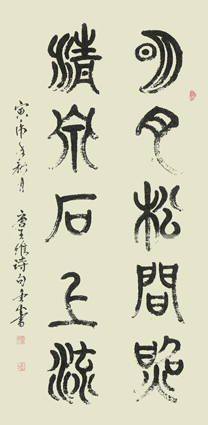 明月松間照
清泉石上流
寅虎年秋月
唐王維詩句